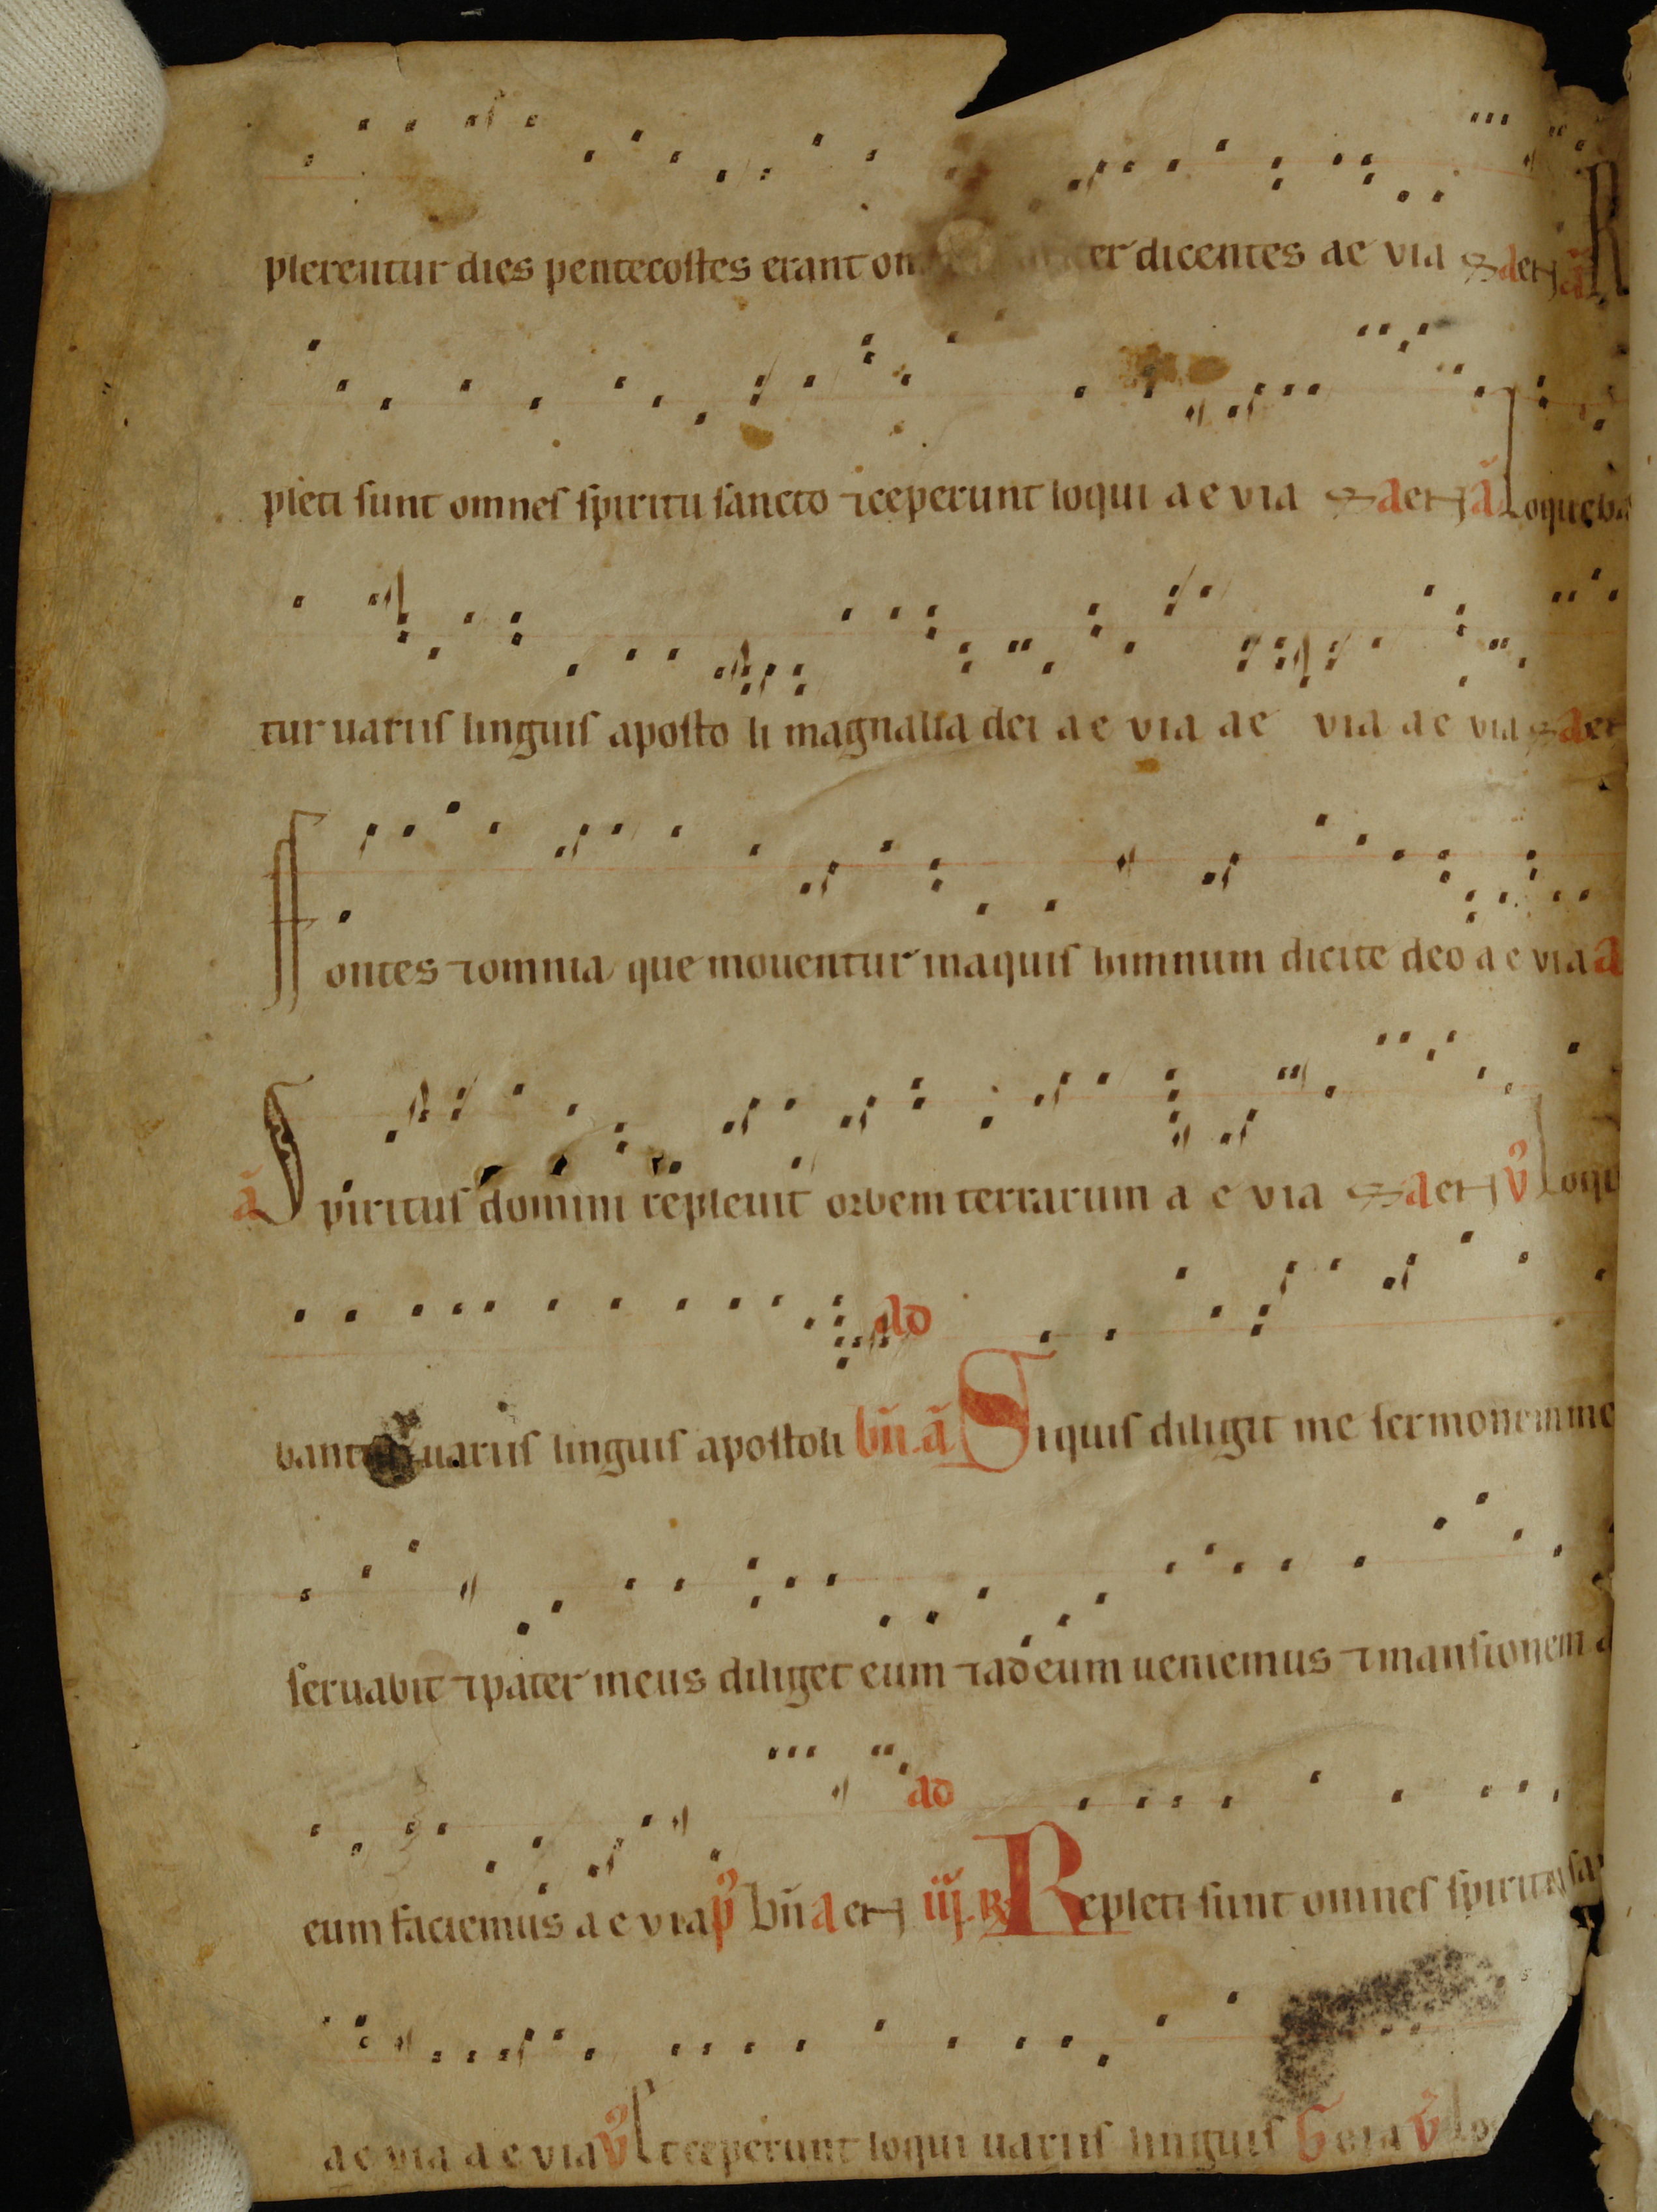 plerentur dies pentecostes erant om er dicentes ae via aeꝛ ã R
pleti sunt omnes spiritu sancto ⁊ ceperunt loqui a e via aeꝛ ã Loqueba
tur uariis linguis aposto li magnalia dei a e via a e via a e via aeꝛ
Fontes ⁊ omnia que mouentur in aquis himnum dicite deo a e via a
ã Spiritus domini repleuit orbem terrarum a e via aeꝛ v̉ Loque
ad
bant uariis linguis apostoli bñ. ã Siquis diligit me sermonem me
seruabit ⁊ pater meus diliget eum ⁊ ad eum ueniemus ⁊ mansionem a
ad
eum faciemus a e via p̉ bñ a eꝛ iij. ℟ Repleti sunt omnes spiritu sa
a e via a e via v̉ Et ceperunt loqui uariis linguis G eia v̉ Lo